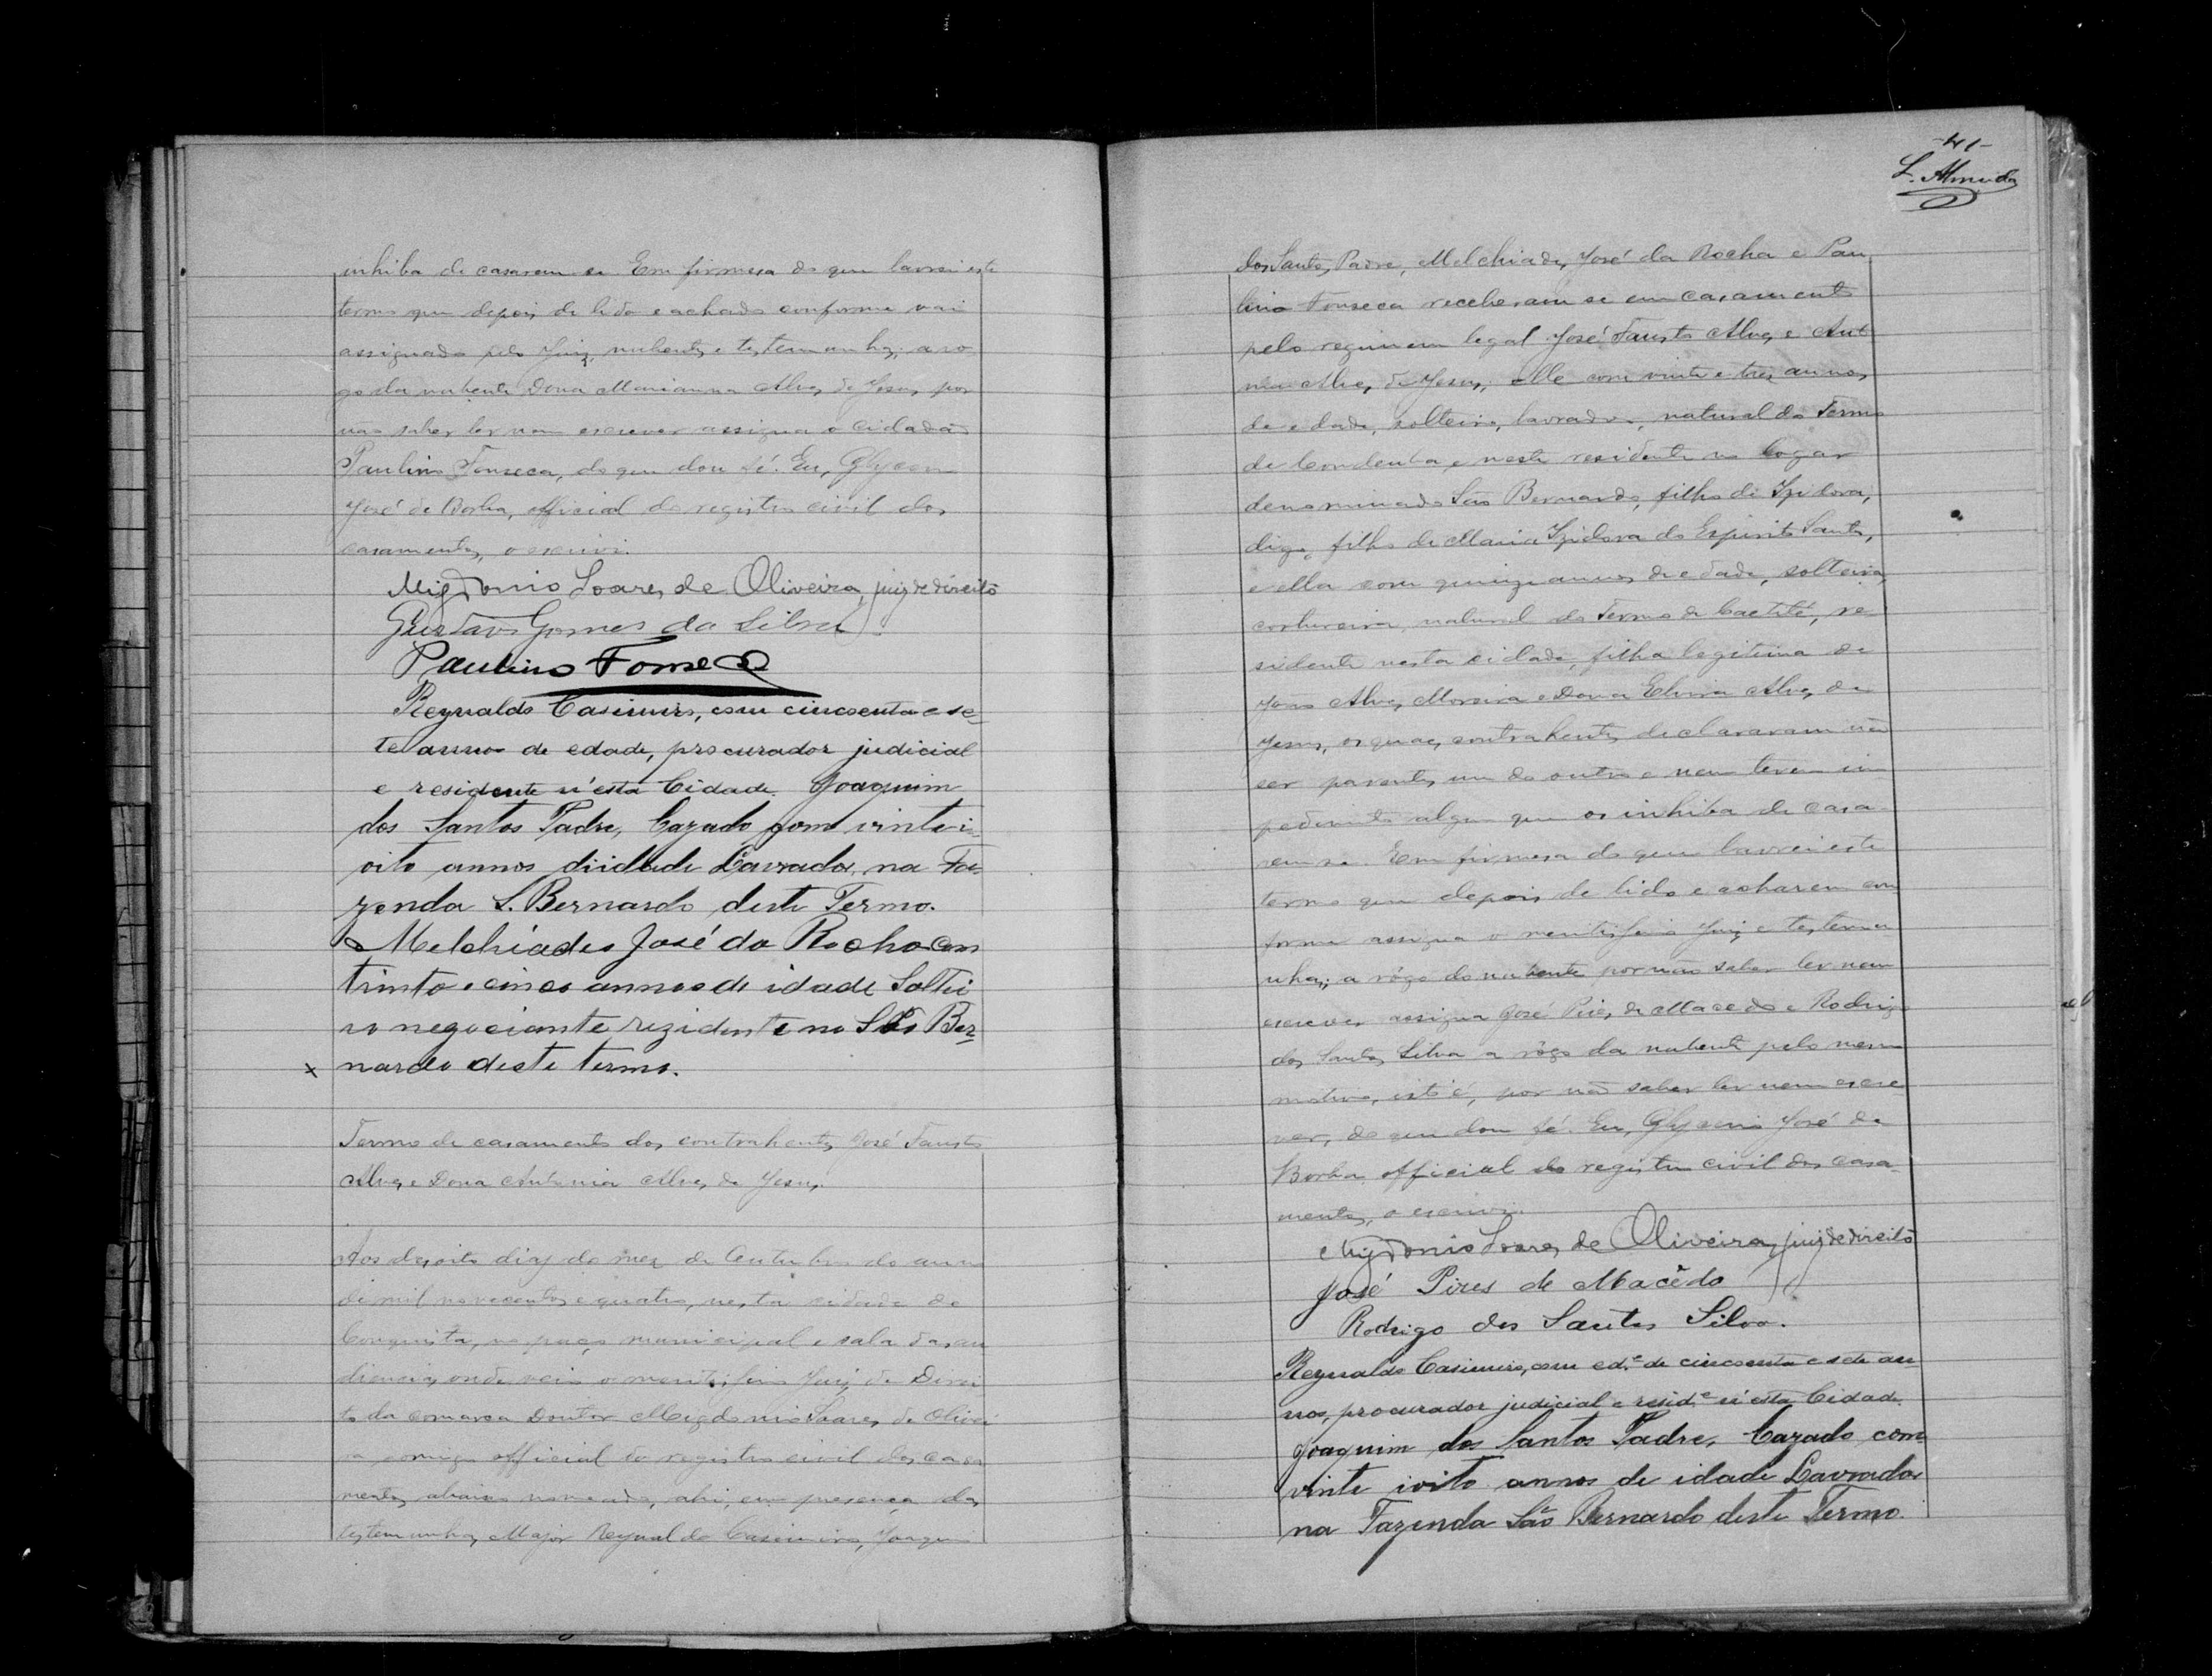 inhiba de casarem se. Em firmesa do que lavrei este
termo que depois de lido e achado conforme vai
assignado pelo Juiz, nubente e testemunhas; a ro
go da nubente Dona Marianna Alves de Jesus, por
não saber ler nem escrever assigna o cidadão
Paulino Fonseca, do que dou fé. Eu, Glycerio
José de Borba, official do registro civil dos
casamentos, o escrivi.
Migdonio Soares de Oliveira, juiz de direito
Gustavo Gomes da Silva
Paulino Fonseca
Reynaldo Casimiro, com cincoenta e se-
te annos de edade, procurador judicial
e residente n'esta Cidade. Joaquim
dos Santos Padre, Cazado com vinte i
oito annos diidade Lavrador, na Fa-
zenda S. Bernardo deste Termo.
Melchiades José da Rocha com
trinta e cinco annos de idade Soltei
ro negociante rezidente no São Ber-
nardo deste termo.
Termo de casamento dos contrahentes José Fausto
Alves e Dona Antonia Alves de Jesus.
Aos desoito dias do mez de Outubro do anno
de mil novecentos e quatro, nesta cidade de
Conquista, no paço municipal e sala das au
diencias, onde veio o meritissimo Juiz de Direi
to da comarca Doutor Migdonio Soares de Olivei
ra comigo official do registro civil dos casa
mentos abaixo nomeado, ahi, em presença das
testemunhas, Major Reynaldo Casimiro, Joaquim
-41-
L. Almeida
dos Santos Padre, Melchiades José da Rocha e Pau
lino Fonseca receberam se em casamento
pelo regimem legal José Fausto Alves e Anto
nia Alves de Jesus; elle com vinte e tres annos
de edade, solteiro, lavrador, natural do Termo
de Condeuba, e neste residente no logar
denominado São Bernardo, filho de Izidora,
digo, filho de Maria Izidora do Espirito Santo,
e ella com quinze annos de edade, solteira,
costureira, natural do Termo de Caetité, re
sidente nesta cidade, filha legitima de
João Alves Moreira e Dona Elvira Alves de
Jesus, os quaes contrahentes declararam não
ser parentes um do outro e nem terem im
pedimento algum que os inhiba de casa
rem se. Em firmesa do que lavrei este
termo que depois de lido e acharem con
forme assigna o meritissimo Juiz e testemu
nhas; a rôgo do nubente por não saber ler nem
escrever assigna José Pires de Macedo e Rodrigo
dos Santos Silva a rôgo da nubente pelo mesmo
motivo, isto é, por não saber ler nem escre
ver, do que dou fé. Eu, Glycerio José de
Borba official do registro civil dos casa
mentos, o escrivi.
Migdonio Soares de Oliveira, juiz de direito
José Pires de Macêdo
Rodrigo dos Santos Silva.
Reynaldo Casimiro, com ed.e de cincoenta e sete an-
nos, procurador judicial e resid.e n'esta Cidade.
Joaquim dos Santos Padre, Cazado com
vinte ioito annos de idade Lavrador
na Fazenda São Bernardo deste Termo.